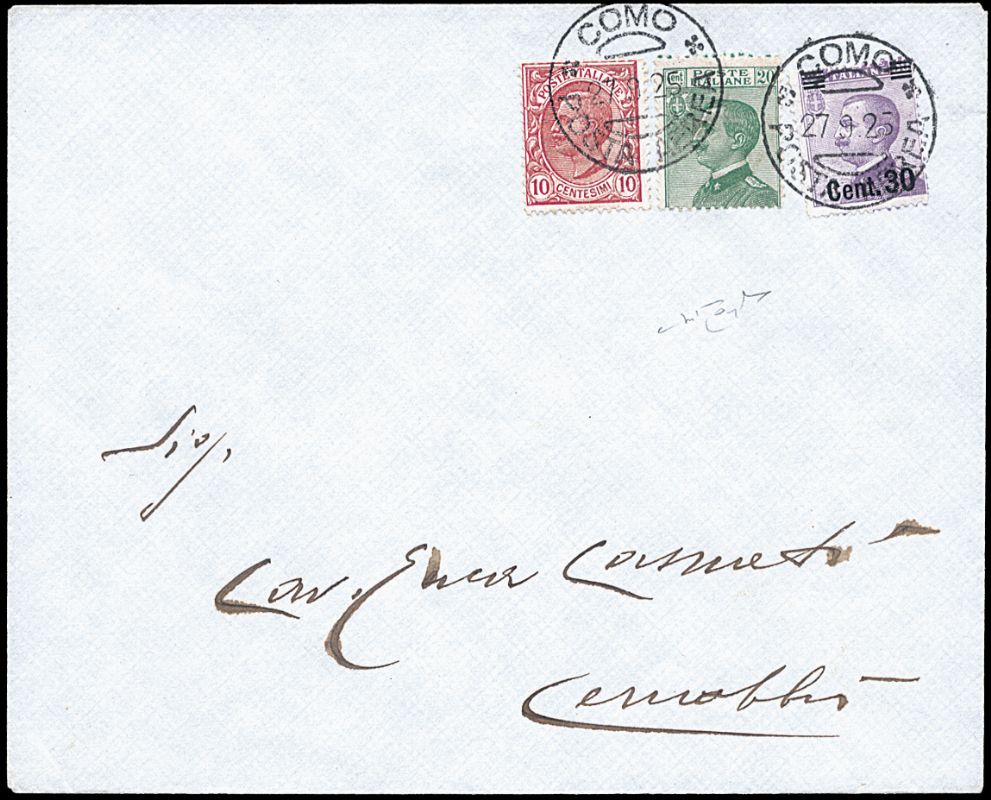 COMO
POSTA AEREA
POSTE ITALIANE
10 CENTESIMI 10
Cent POSTE ITALIANE 20
COMO
27.9.25
POSTA AEREA
Cent. 30
Sig.
Cav. Enea
Cernobbio